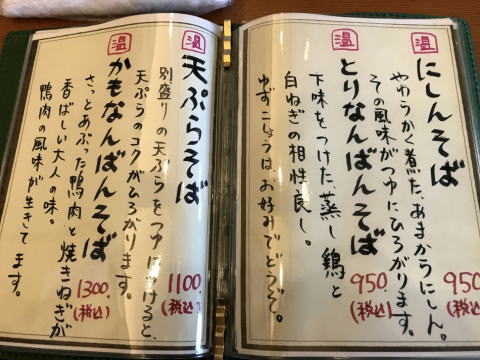 温
にしんそば
やわらかく煮た、あまからにしん。
その風味がつゆにひろがります。
950.
(税込)
温
とりなんばんそば
下味をつけた、蒸し鶏と
白ねぎの相性良し。
ゆずこしょうは、お好みでどうぞ。
950.
(税込)
温
天ぷらそば
別盛りの天ぷらをつゆにつけると、
天ぷらのコクがひろがります。
1100.
(税込)
温
かもなんばんそば
さっとあぶった鴨肉と焼きねぎが
香ばしい大人の味。
鴨肉の風味が生きてます。
1300.
(税込)